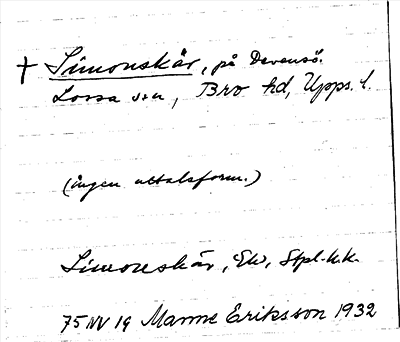 † Simonskär, på Davensö.
Lossa sn, Bro hd, Upps. l.
(ingen uttalsform.)
Simonskär, Ek, Stpl. k.k.
75 NV 19 Manne Eriksson 1932